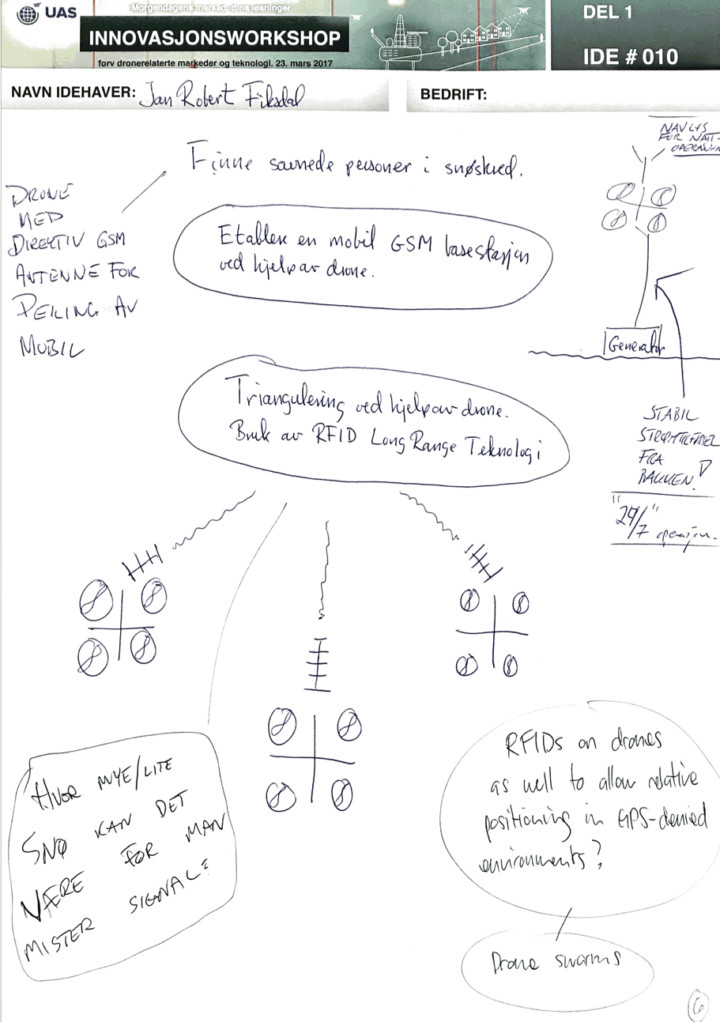 UAS
Morgendagens marked, dine løsninger
INNOVASJONSWORKSHOP
forv dronerelaterte markeder og teknologi. 23. mars 2017
DEL 1
IDE # 010
NAVN IDEHAVER: Jan Robert Fiksdal
BEDRIFT:
Finne savnede personer i snøskred.
DRONE
MED
DIREKTIV GSM
ANTENNE FOR
PEILING AV
MOBIL
Etablere en mobil GSM basestasjon
ved hjelp av drone.
NAVLYS
FOR NATT-
OPERASJON
Generator
STABIL
STRØMTILFØRSEL
FRA
BAKKEN!
"24/7" operasjon.
Triangulering ved hjelp av drone.
Bruk av RFID Long Range Teknologi
HVOR MYE/LITE
SNØ KAN DET
VÆRE FØR MAN
MISTER SIGNAL?
RFIDs on drones
as well to allow relative
positioning in GPS-denied
environments?
Drone swarms
6